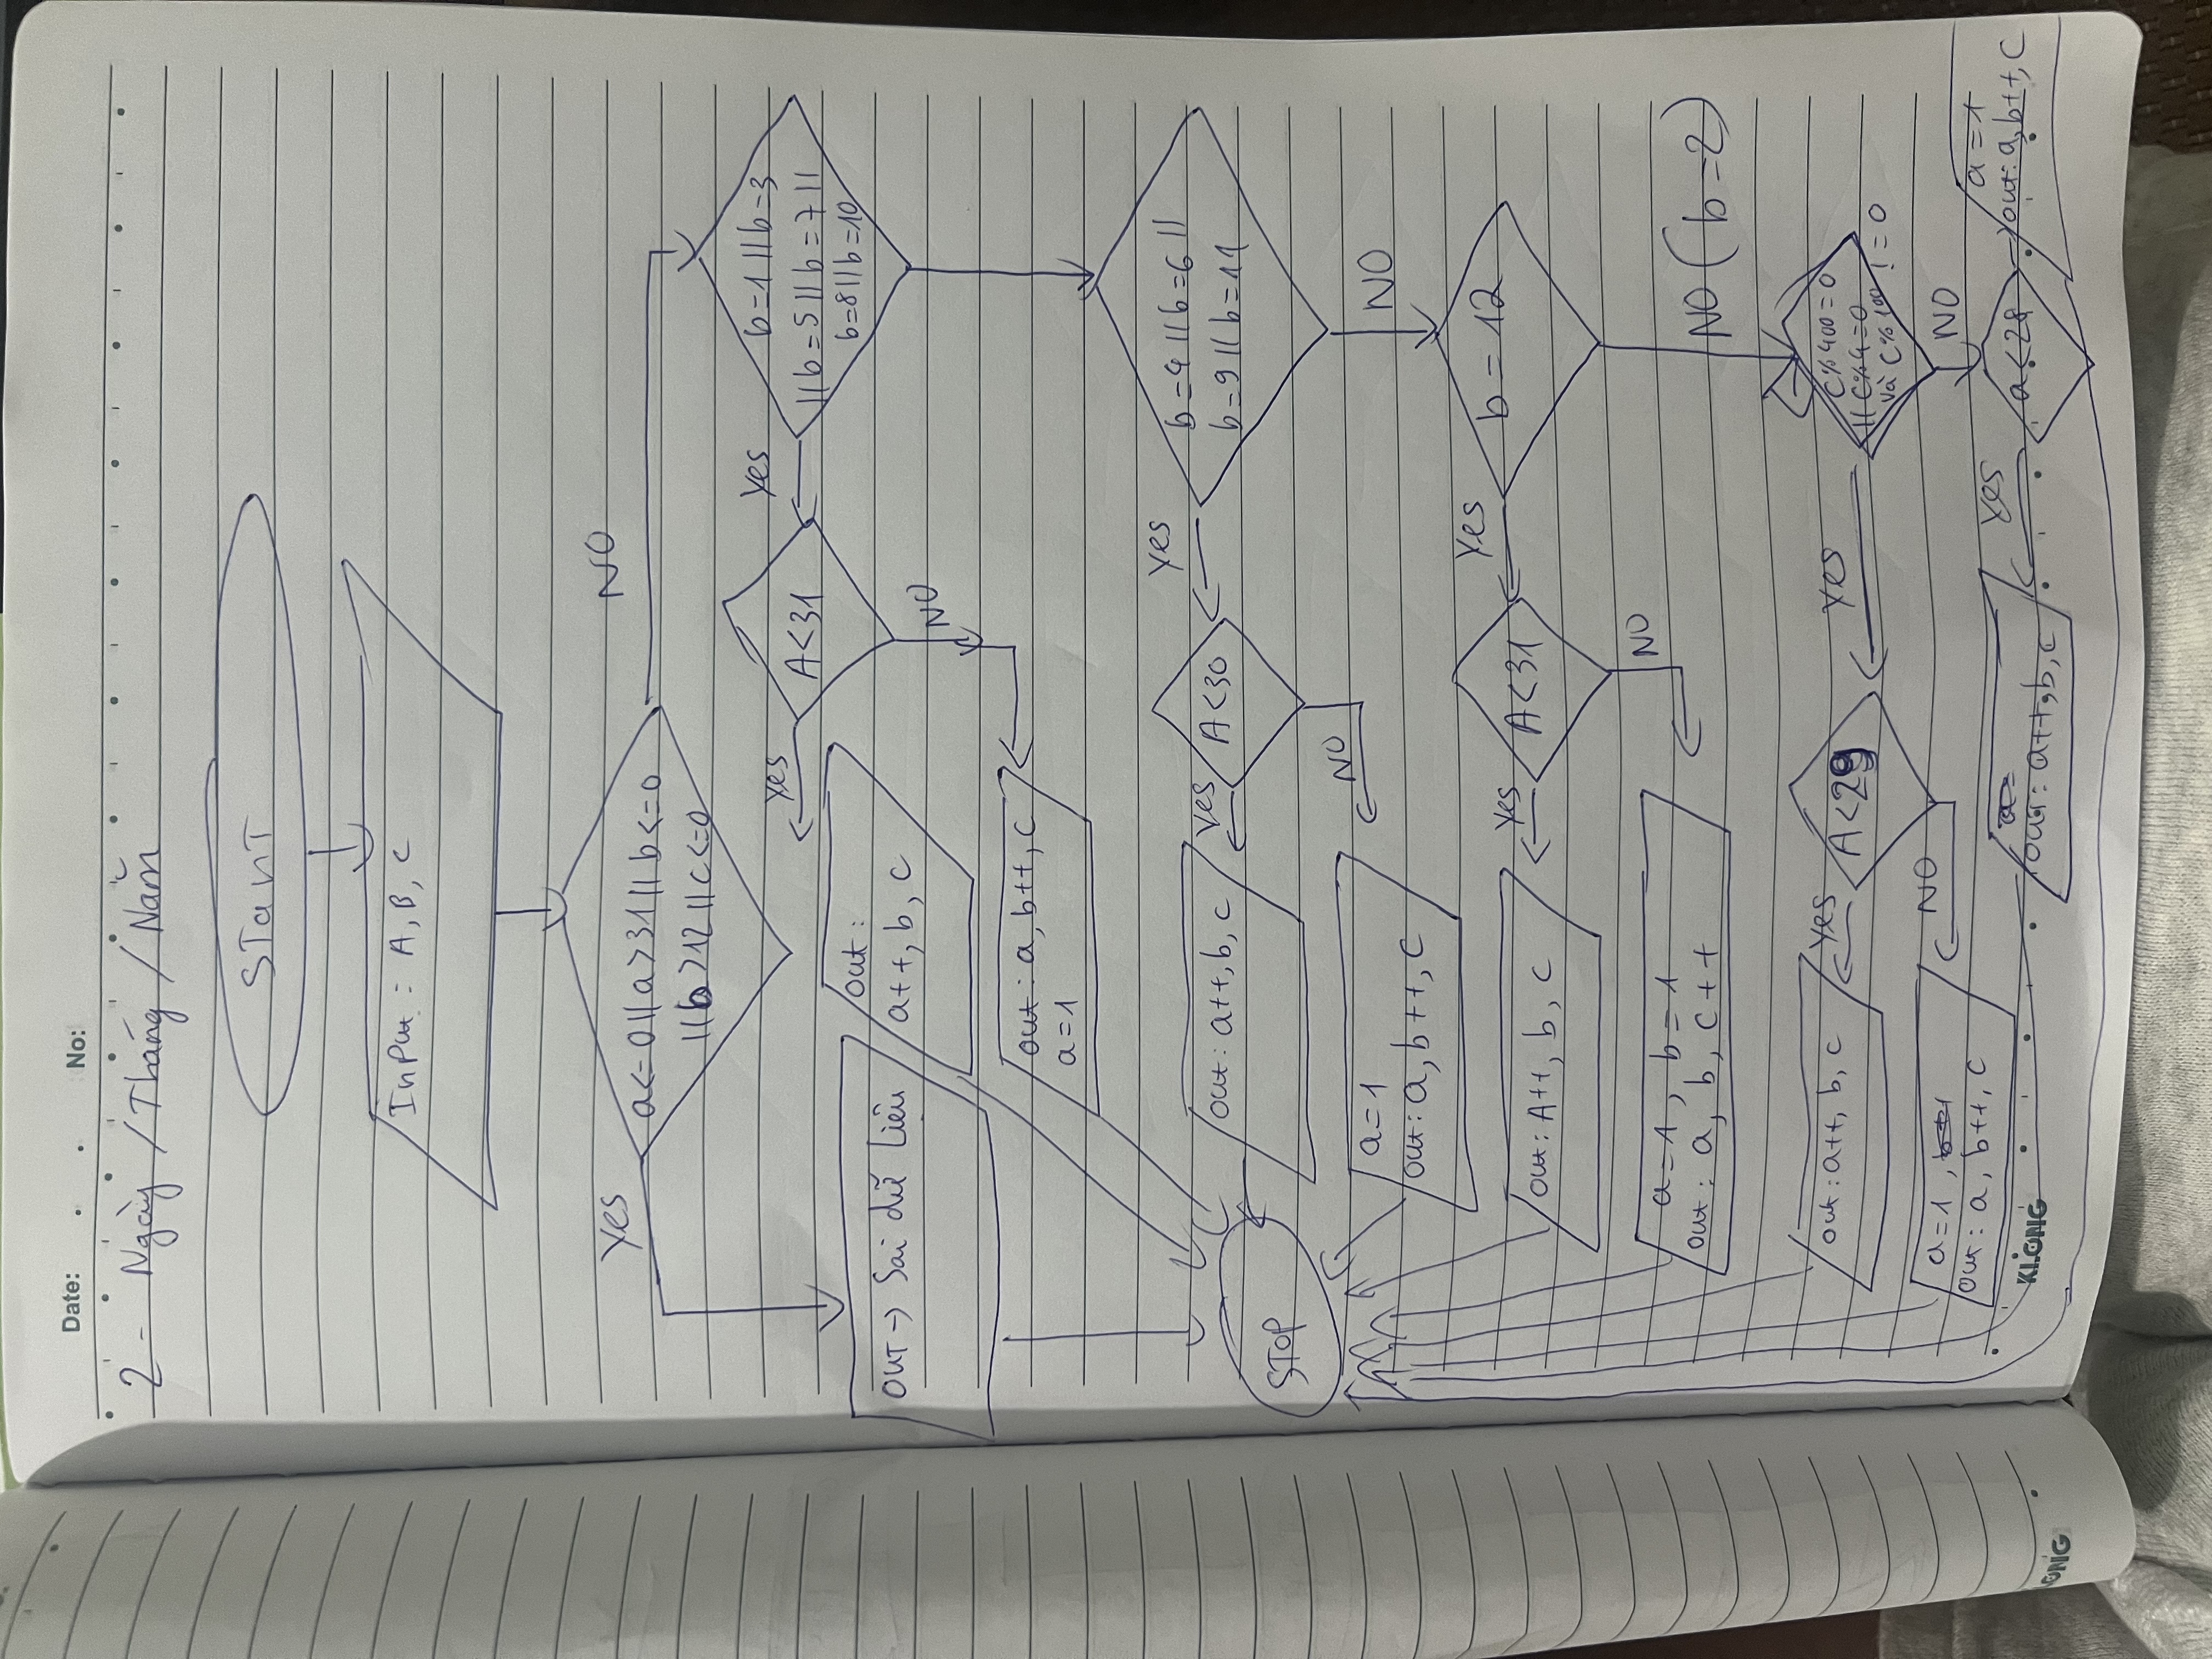 Date: . . No:
2 - Ngày / Tháng / Năm
START
InPut : A, B, C
Yes
NO
a<=0||a>31||b<=0
||b>12||c<=0
b=1||b=3
||b=5||b=7||
b=8||b=10
Yes
A<31
Yes
out :
a++, b, c
OUT → Sai dữ liệu
NO
out : a, b++, c
a=1
b=4||b=6||
b=9||b=11
Yes
A<30
Yes
out : a++, b, c
STOP
NO
a=1
out : a, b++, c
NO
b = 12
Yes
A<31
Yes
out : A++, b, c
NO
a=1, b=1
out : a, b, c++
NO (b=2)
C%400=0
|| C%4=0
và C%100 !=0
Yes
A<29
Yes
out : a++, b, c
NO
a=1,
out : a, b++, c
NO
a<28
Yes
out : a++, b, c
a=1
out : a, b++, c
KLONG
ONG